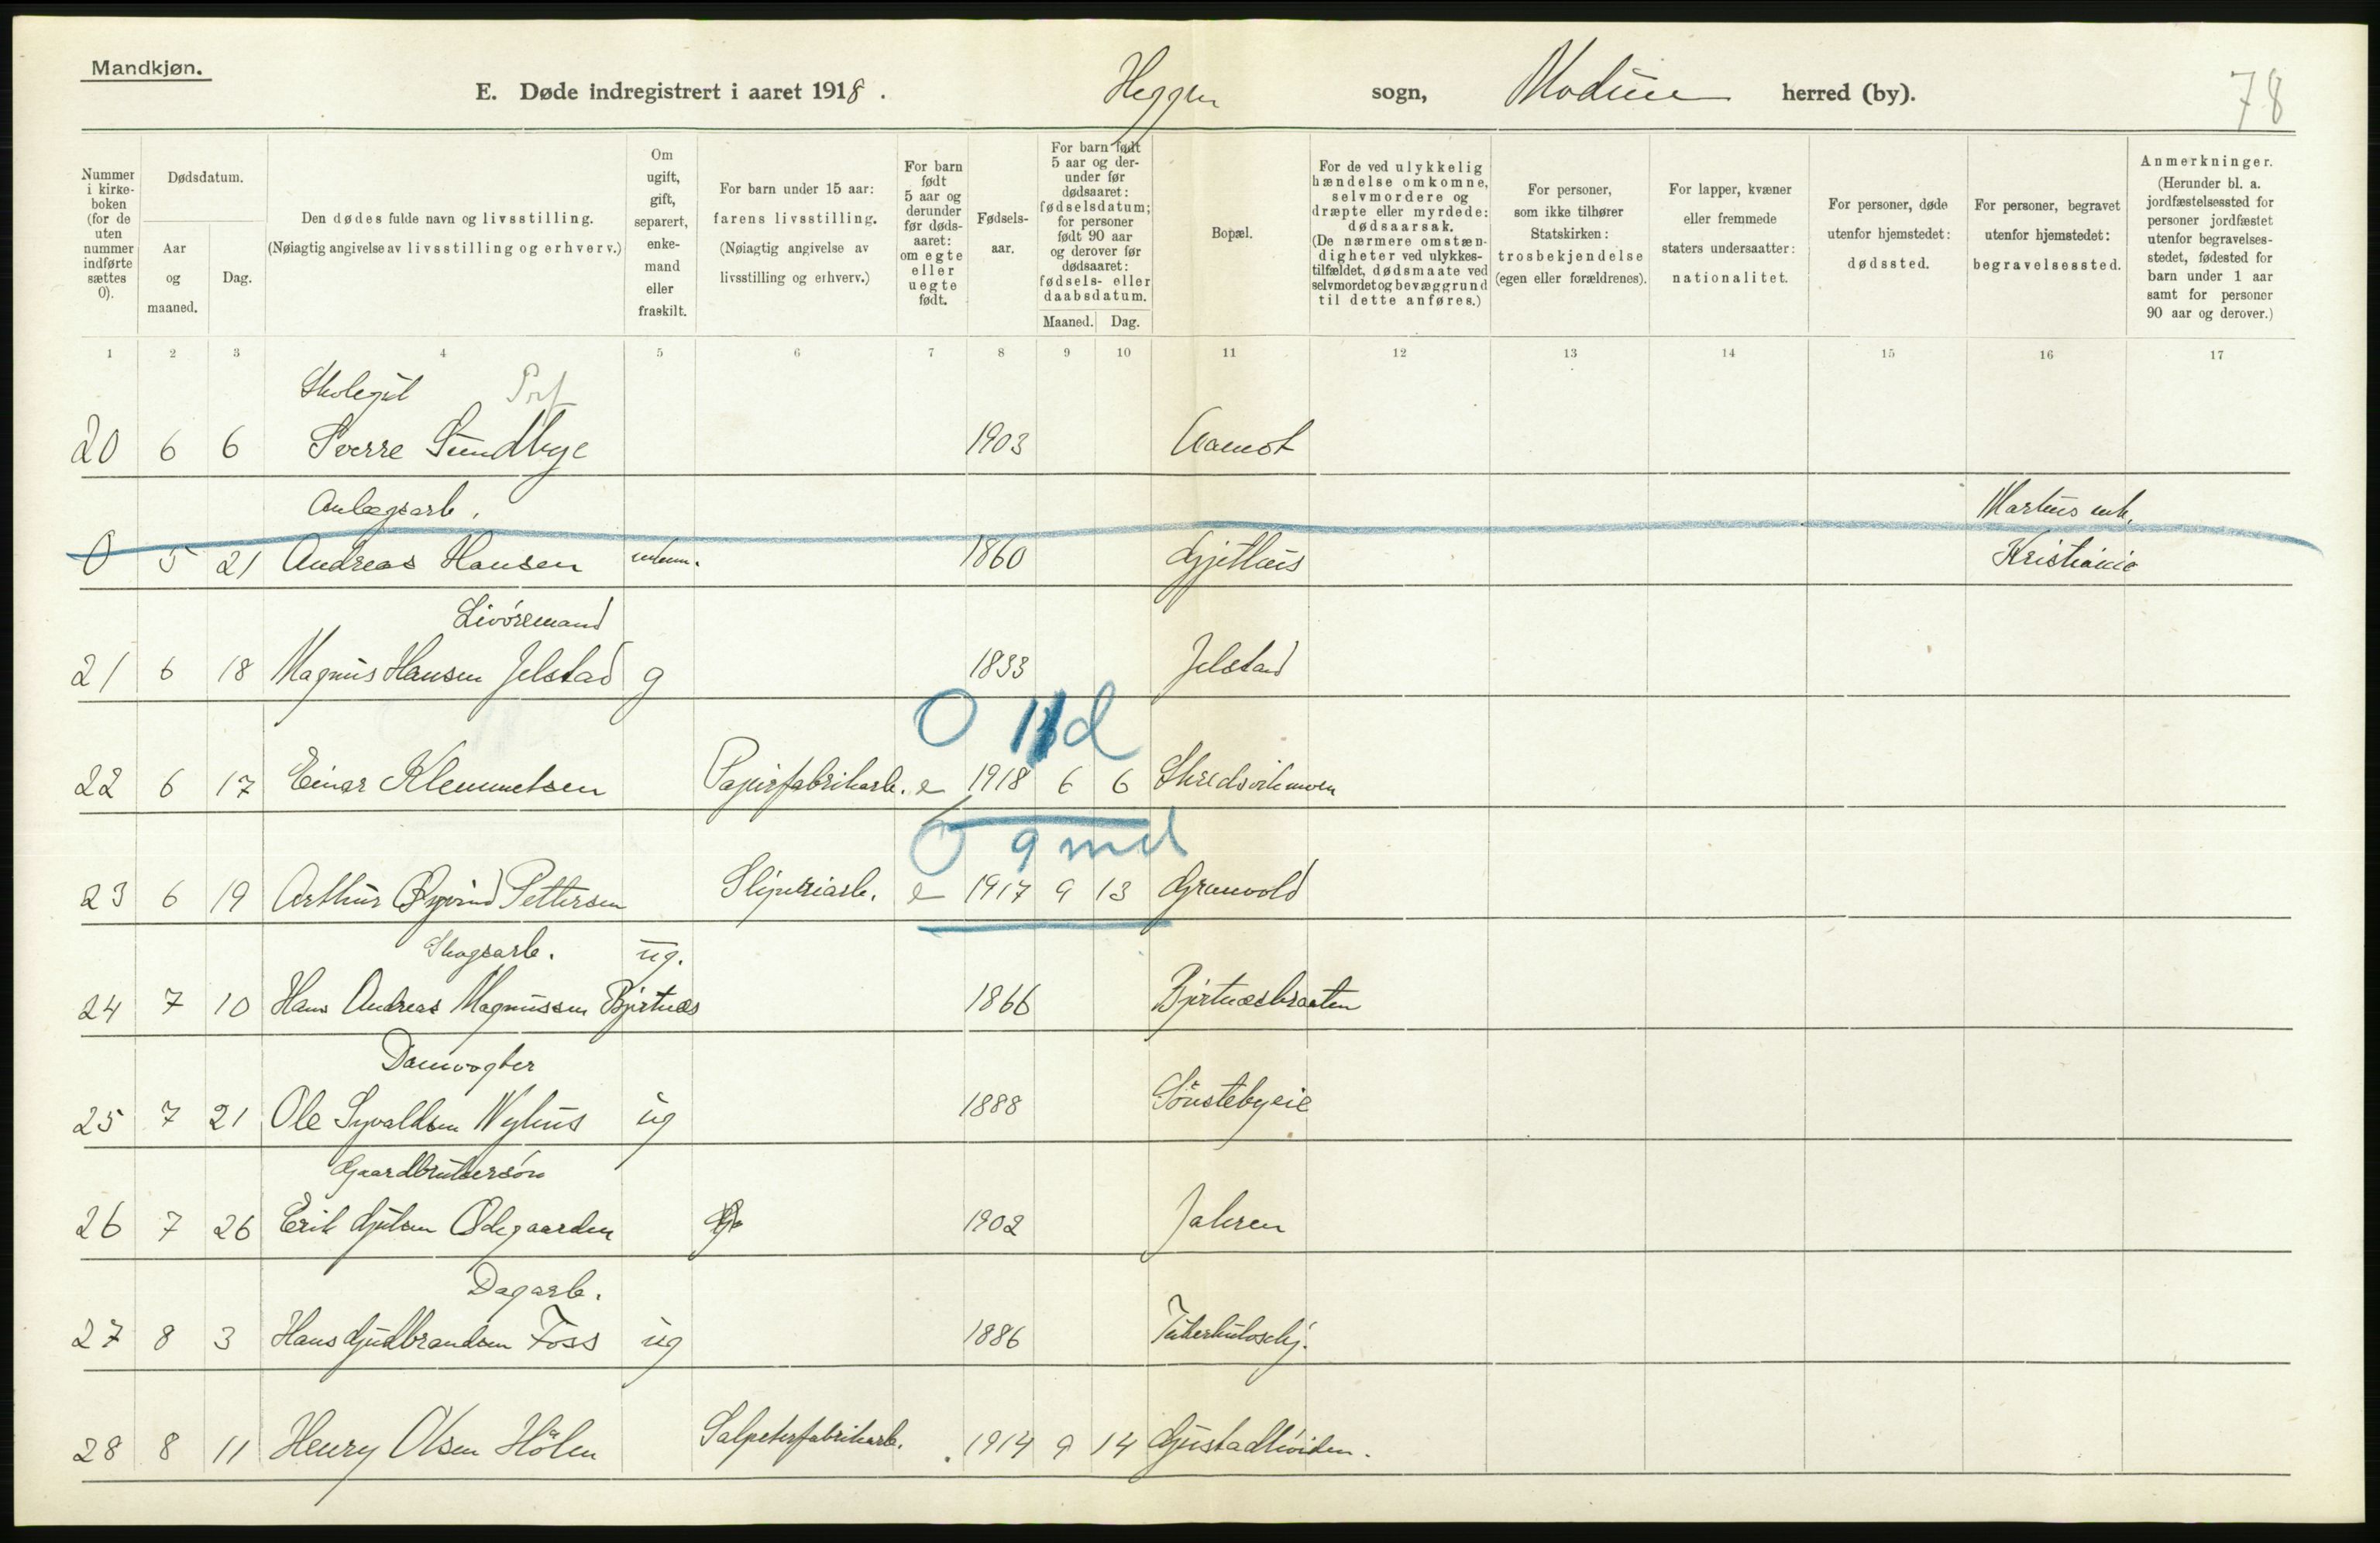 Mandkjøn.
E. Døde indregistrert i aaret 1918. Heggen sogn, Modum herred (by). 78
Nummer i kirke- boken (for de uten nummer indførte sættes 0).
Dødsdatum.
Aar og maaned.
Dag.
Den dødes fulde navn og livsstilling.
(Nøiagtig angivelse av livsstilling og erhverv.)
Om ugift, gift, separert, enke- mand eller fraskilt.
For barn under 15 aar: farens livsstilling. (Nøiagtig angivelse av livsstilling og erhverv.)
For barn født 5 aar og derunder før døds- aaret: om egte eller uegte født.
Fødsels- aar.
For barn født 5 aar og der- under før dødsaaret: fødselsdatum; for personer født 90 aar og derover før dødsaaret: fødsels- eller daabsdatum.
Maaned. Dag.
Bopæl.
For de ved ulykkelig hændelse omkomne, selvmordere og dræpte eller myrdede: dødsaarsak. (De nærmere omstæn- digheter ved ulykkes- tilfældet, dødsmaate ved selvmordet og bevæggrund til dette anføres.)
For personer, som ikke tilhører Statskirken: trosbekjendelse (egen eller forældrenes).
For lapper, kvæner eller fremmede staters undersaatter: nationalitet.
For personer, døde utenfor hjemstedet: dødssted.
For personer, begravet utenfor hjemstedet: begravelsessted.
Anmerkninger. (Herunder bl. a. jordfæstelsessted for personer jordfæstet utenfor begravelses- stedet, fødested for barn under 1 aar samt for personer 90 aar og derover.)
1 2 3 4 5 6 7 8 9 10 11 12 13 14 15 16 17
Skolegut
20 6 6 Sverre Sundbye 1903 Aamot
Anlægsarb. Markus mk.
0 5 21 Andreas Hansen enkem. 1860 Gjethus Kristiania
Livøremand
21 6 18 Magnus Hansen Jelstad g 1833 Jelstad
0 11 d
22 6 17 Einar Klemmetsen Papirfabrikarb. e 1918 6 6 Skredsvikmoen
0 9 md
23 6 19 Arthur Øyvind Pettersen Sliperiarb. e 1917 9 13 Grunvold
Skogsarb. ug.
24 7 10 Hans Andreas Magnussen Bjertnæs 1866 Bjertnæsbraaten
Damvogter
25 7 21 Ole Syvaldsen Nyhus ug 1888 Sønstebyeie
Gaardbrukersøn
26 7 26 Erik Gulsen Ødegaarden 1902 Jahren
Dagarb.
27 8 3 Hans Gudbrandsen Foss ug 1886 Tuberkuloschj.
28 8 11 Henry Olsen Hølen Salpeterfabrikarb. 1914 9 14 Gustadhviden.